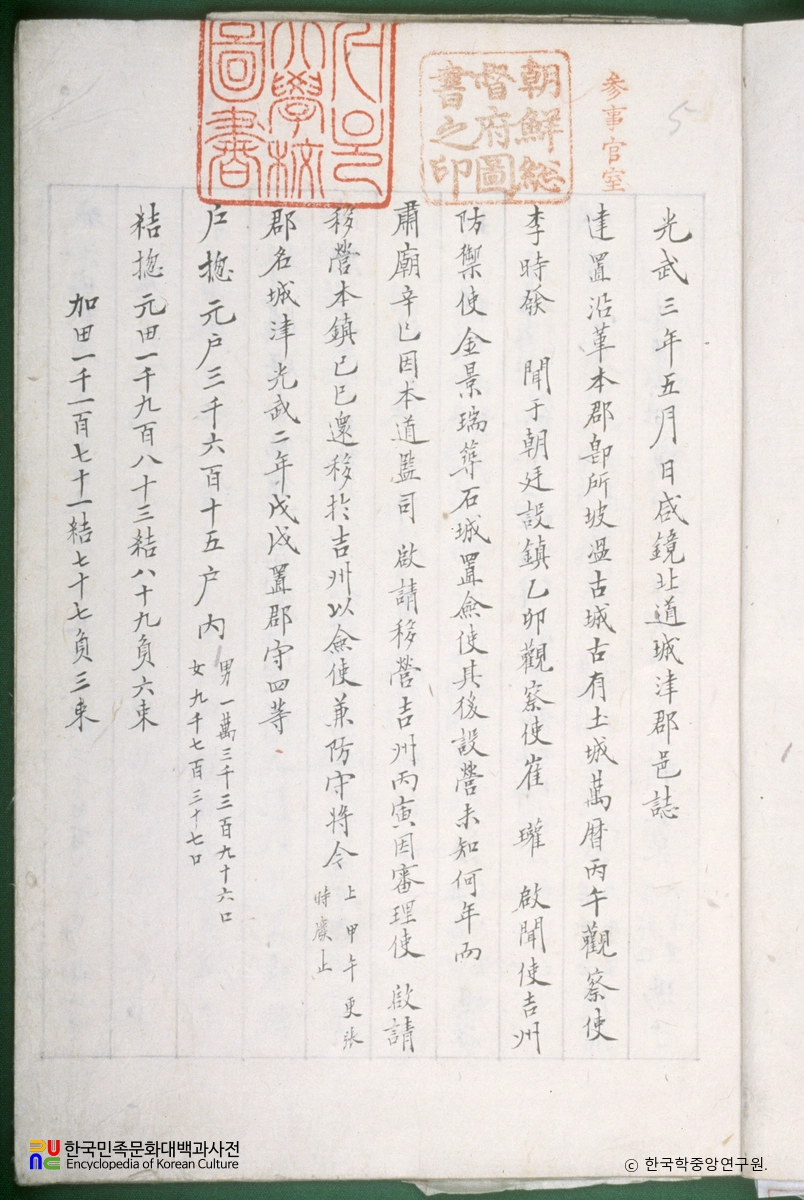 參事官室
朝鮮総
督府圖
書之印
大學校
圖書
5
光武三年五月 日咸鏡北道城津郡邑誌
建置沿革本郡卽所坡溫古城古有土城萬曆丙午觀察使
李時發 聞于朝廷設鎮乙卯觀察使崔 瓘 啟聞使吉州
防禦使金景瑞築石城置僉使其後設營未知何年而
肅廟辛巳因本道監司 啟請移營吉州丙寅因審理使 啟請
移營本鎮己巳還移於吉州以僉使兼防守將令 上甲午更張
時廢止
郡名城津光武二年戊戌置郡守四等
戶揔 元戶三千六百十五戶內 男一萬三千三百九十六口
女九千七百三十七口
結揔 元田一千九百八十三結八十九負六束
加田一千一百七十一結七十七負三束
한국민족문화대백과사전
Encyclopedia of Korean Culture
ⓒ 한국학중앙연구원.